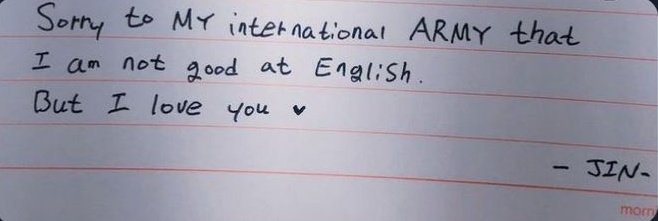 Sorry to MY international ARMY that
I am not good at English.
But I love you ♥
- JIN-